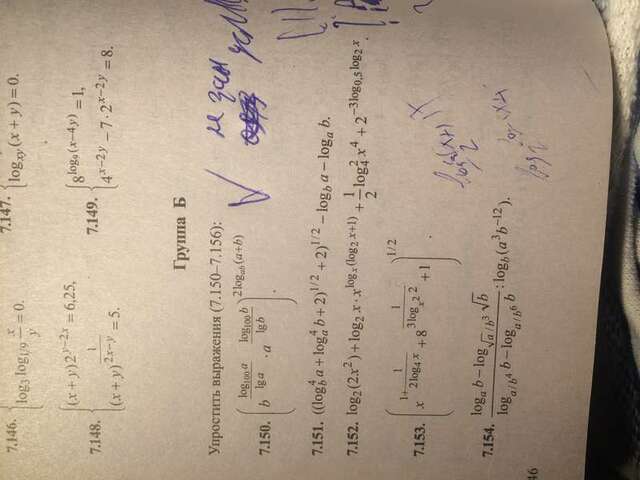 7.146. { log₃ log₁/₉ x/y = 0.
7.147. { log_{xy}(x + y) = 0.
7.148. { (x + y)2^{y−2x} = 6,25, (x + y)^{1/(2x−y)} = 5.
7.149. { 8^{log₉(x−4y)} = 1, 4^{x−2y} − 7 · 2^{x−2y} = 8.
Группа Б
Упростить выражения (7.150–7.156):
7.150. (b^{log₁₀₀ a / lg a} · a^{log₁₀₀ b / lg b})^{2log_{ab}(a+b)}.
7.151. ((log_b⁴ a + log_a⁴ b + 2)^{1/2} + 2)^{1/2} − log_b a − log_a b.
7.152. log₂(2x²) + log₂ x · x^{log_x(log₂ x+1)} + 1/2 log₄² x⁴ + 2^{−3log_{0,5} log₂ x}.
7.153. (x^{1+1/(2log₄ x)} + 8^{1/(3log_{x²} 2)} + 1)^{1/2}.
7.154. (log_a b − log_{√a/b³} √b) / (log_{a/b⁴} b − log_{a/b⁶} b) : log_b(a³b^{−12}).
46